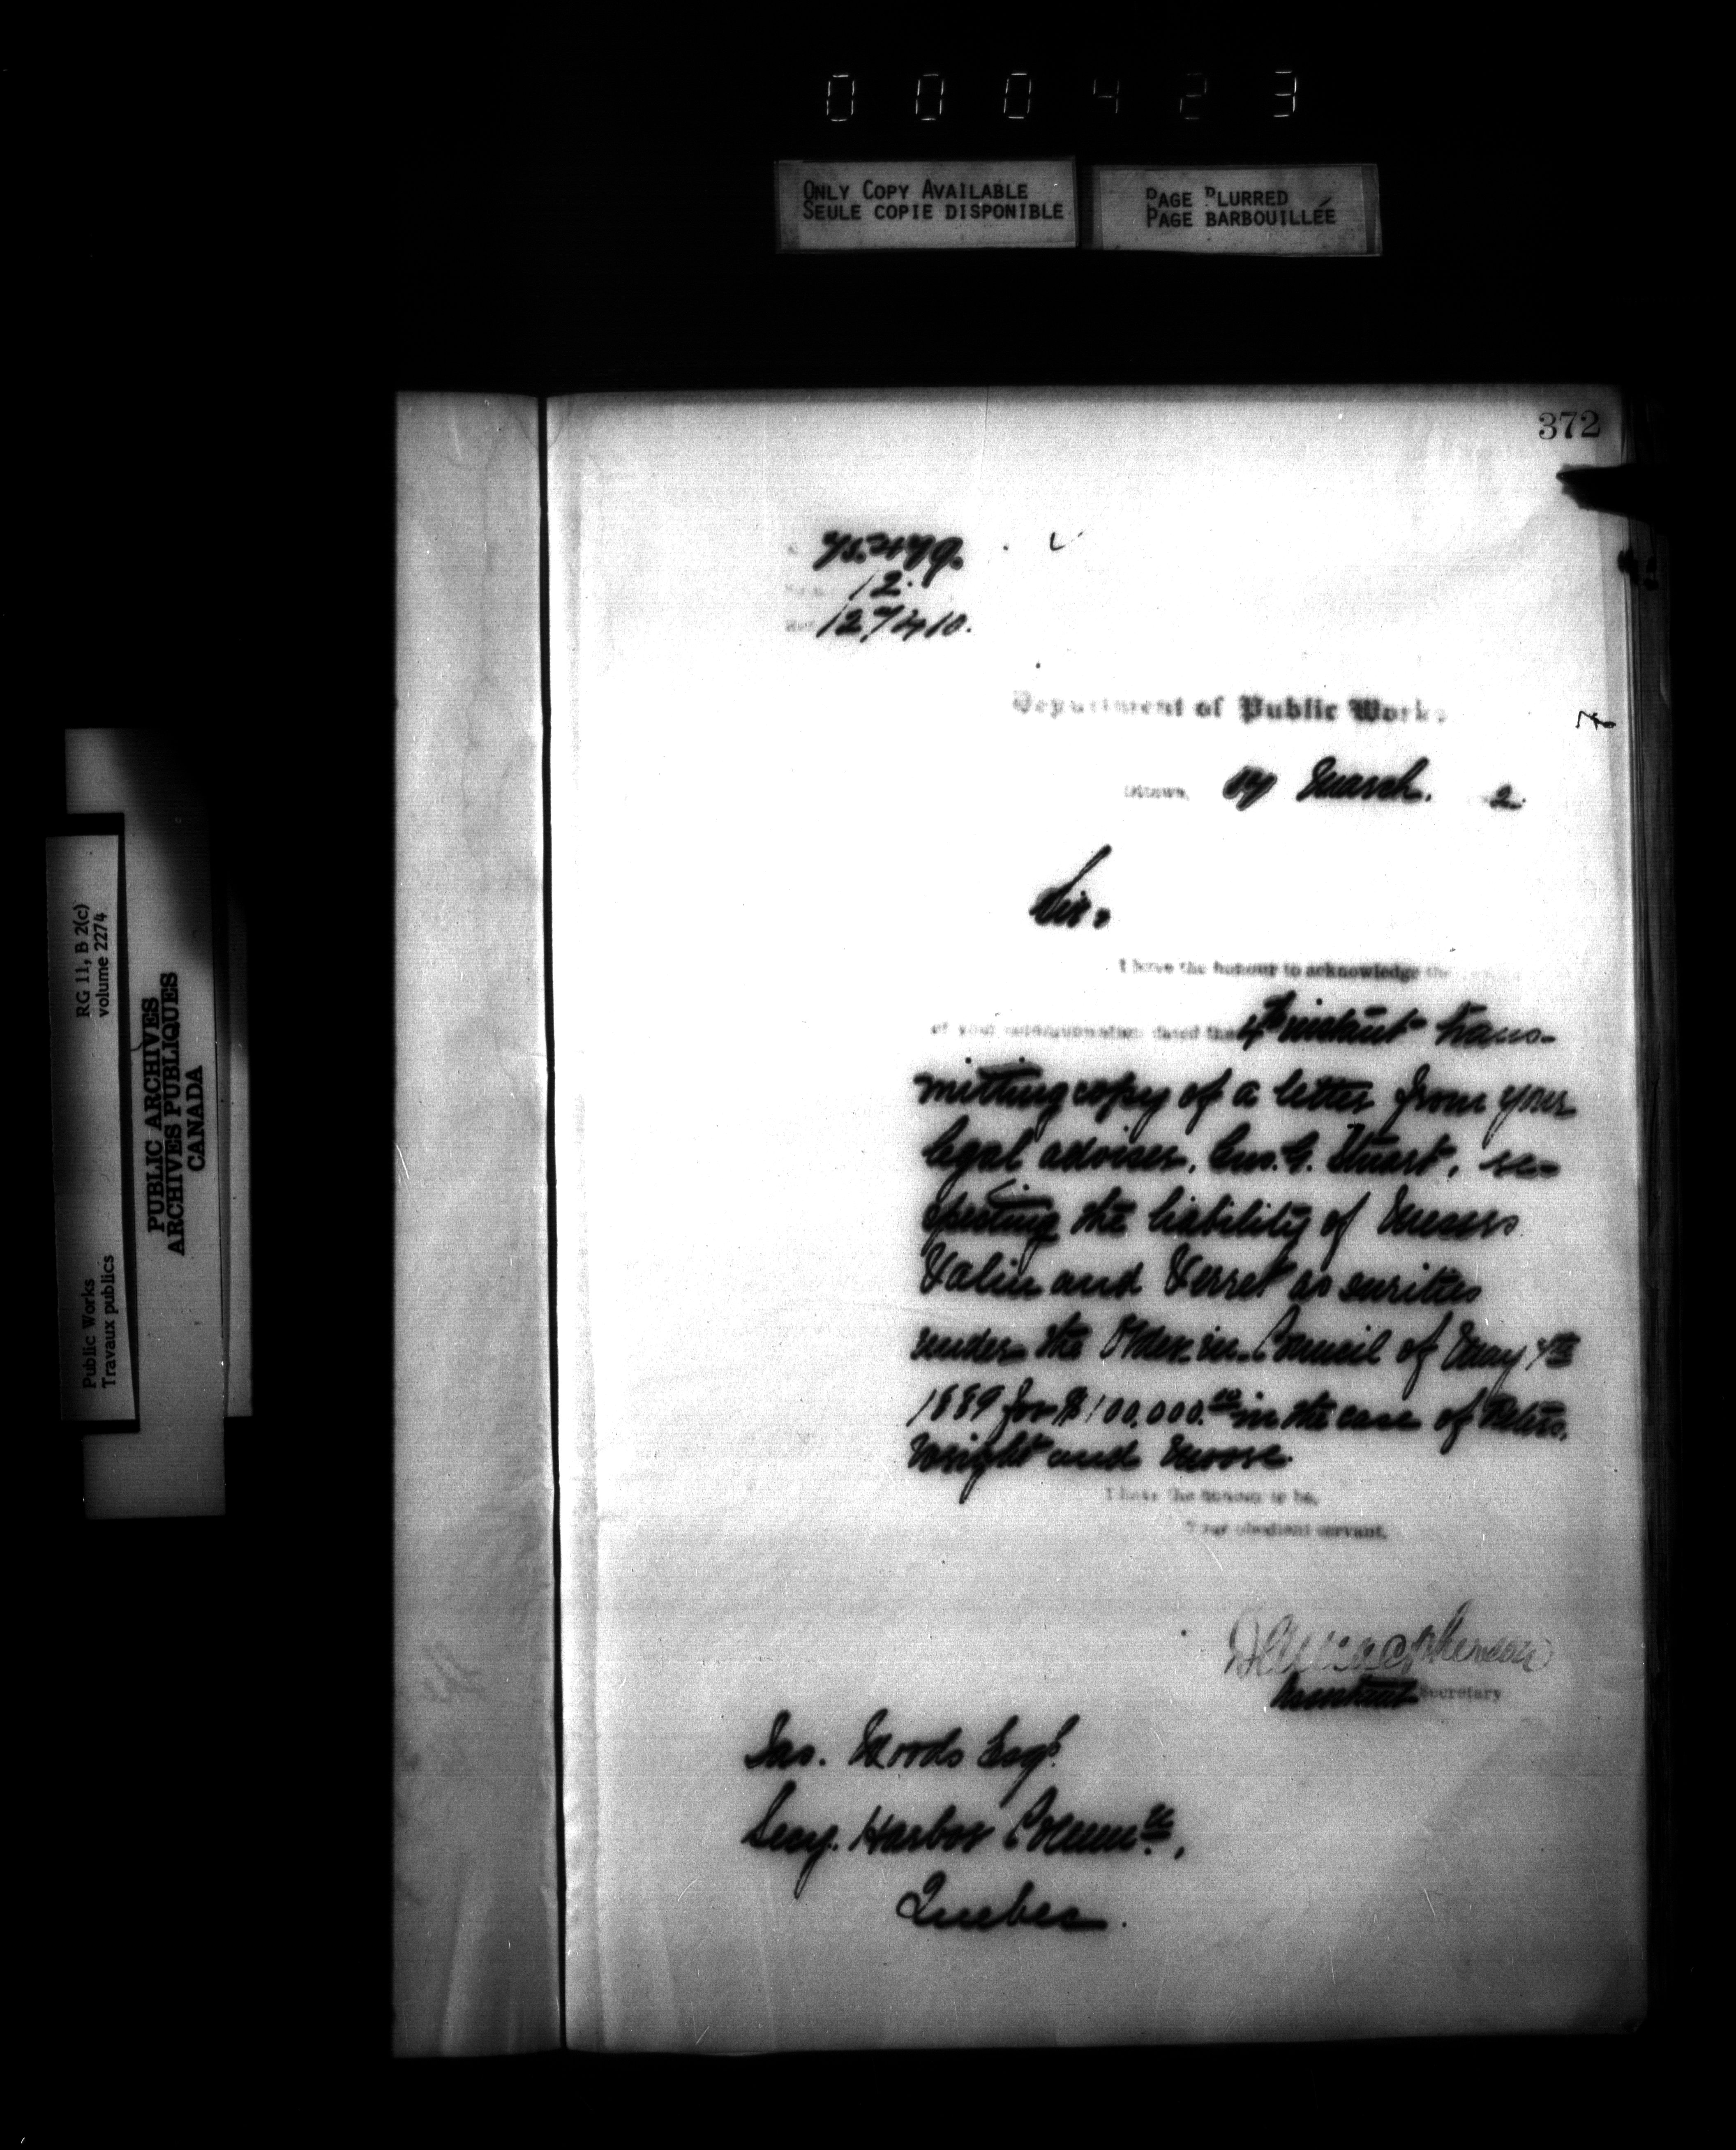 000423
ONLY COPY AVAILABLE
SEULE COPIE DISPONIBLE
PAGE BLURRED
PAGE BARBOUILLÉE
372
12.
127410.
Department of Public Works
Ottawa, March. 2.
Sir,
I have the honour to acknowledge the
of your communication dated the 4th instant trans-
mitting copy of a letter from your
legal adviser, Gus. G. Stuart, re-
specting the liability of Messrs
Valin and Verret as surities
under the Order in Council of May 4th
1889 for $100,000.00 in the case of Peters,
Wright and Moore.
I have the honour to be,
Your obedient servant,
Assistant Secretary
Jas. Woods Esqr.
Secy. Harbor Commrs.,
Quebec.
RG 11, B 2(c)
volume 2274
Public Works
Travaux publics
PUBLIC ARCHIVES
ARCHIVES PUBLIQUES
CANADA